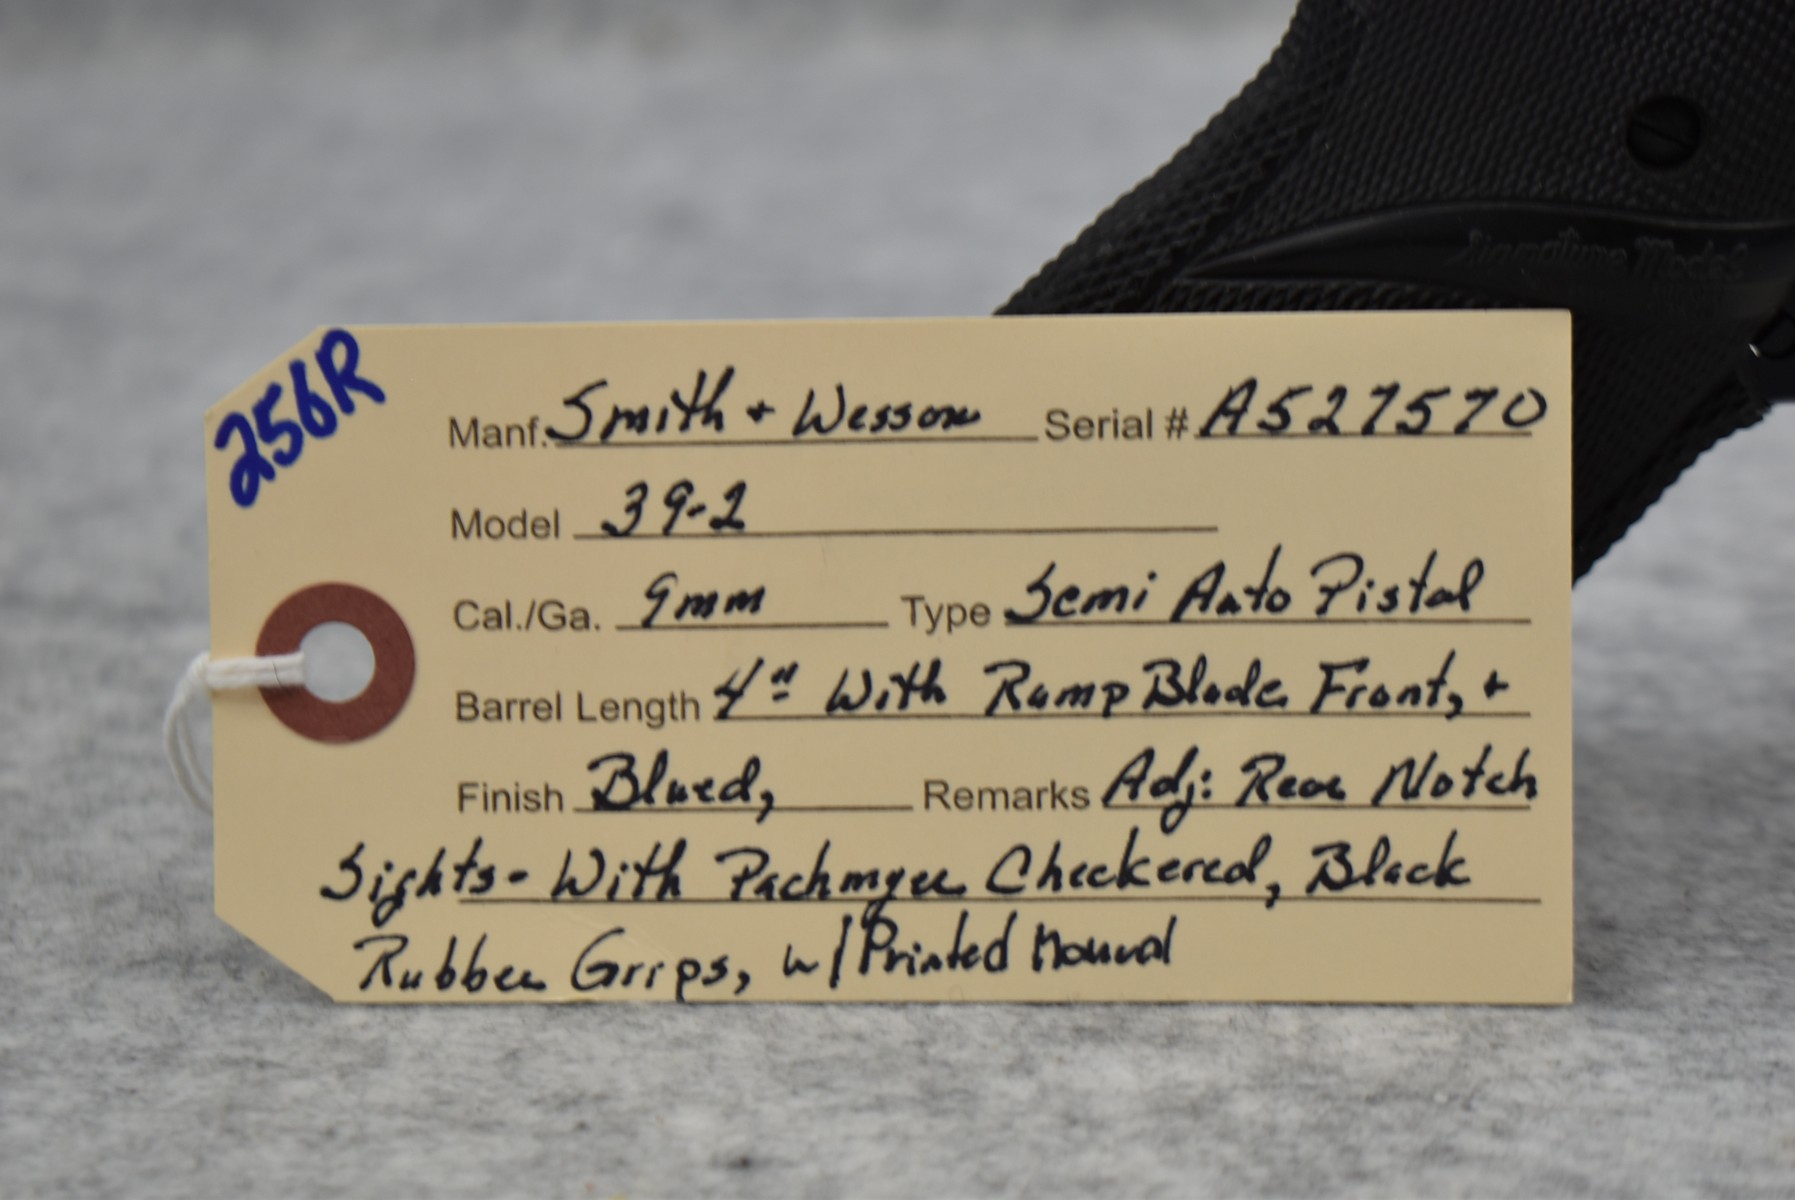 Signature Model
256R
Manf. Smith + Wesson Serial # A527570
Model 39-2
Cal./Ga. 9mm Type Semi Auto Pistol
Barrel Length 4" With Ramp Blade Front, +
Finish Blued, Remarks Adj: Rear Notch
Sights- With Pachmyer Checkered, Black
Rubber Grips, w/ Printed Manual